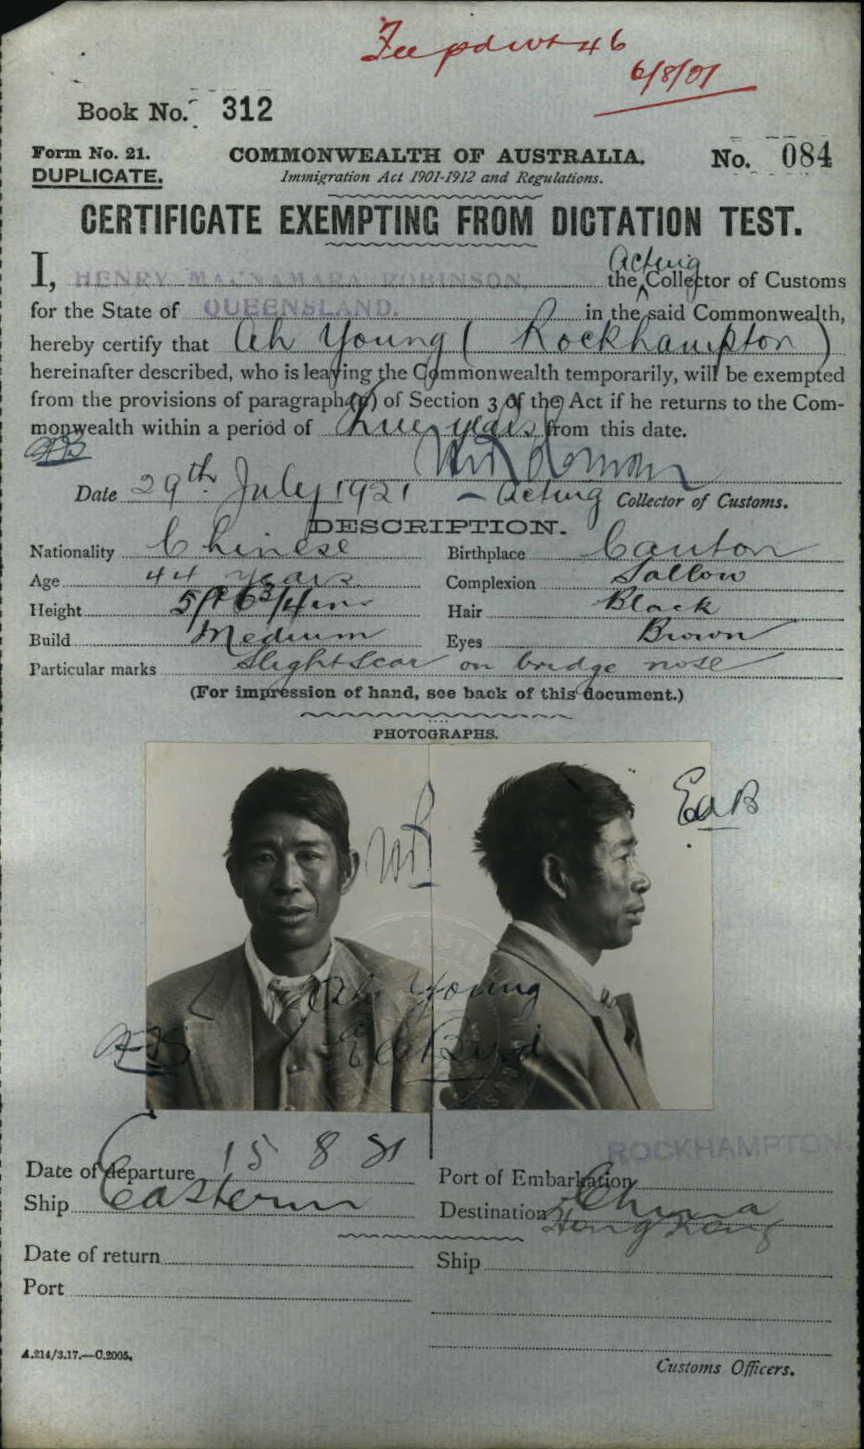 Fee pd
6/8/
Book No. 312
Form No. 21. COMMONWEALTH OF AUSTRALIA. No. 084
DUPLICATE. Immigration Act 1901-1912 and Regulations.
CERTIFICATE EXEMPTING FROM DICTATION TEST.
Acting
I, HENRY MACNAMARA ROBINSON, the Collector of Customs
for the State of QUEENSLAND. in the said Commonwealth,
hereby certify that Ah Young (Rockhampton)
hereinafter described, who is leaving the Commonwealth temporarily, will be exempted
from the provisions of paragraph (a) of Section 3 of the Act if he returns to the Com-
monwealth within a period of years from this date.
Date 29th July 1921 – Acting Collector of Customs.
DESCRIPTION.
Nationality Chinese Birthplace Canton
Age 44 years Complexion Sallow
Height 5ft 6 3/4 ins Hair Black
Build Medium Eyes Brown
Particular marks Slight Scar on bridge nose
(For impression of hand, see back of this document.)
PHOTOGRAPHS.
Ah Young
ROCKHAMPTON.
Date of departure 15 8 21 Port of Embarkation
Ship Eastern Destination China
Hong Kong
Date of return Ship
Port
A.214/3.17.—C.2005.
Customs Officers.